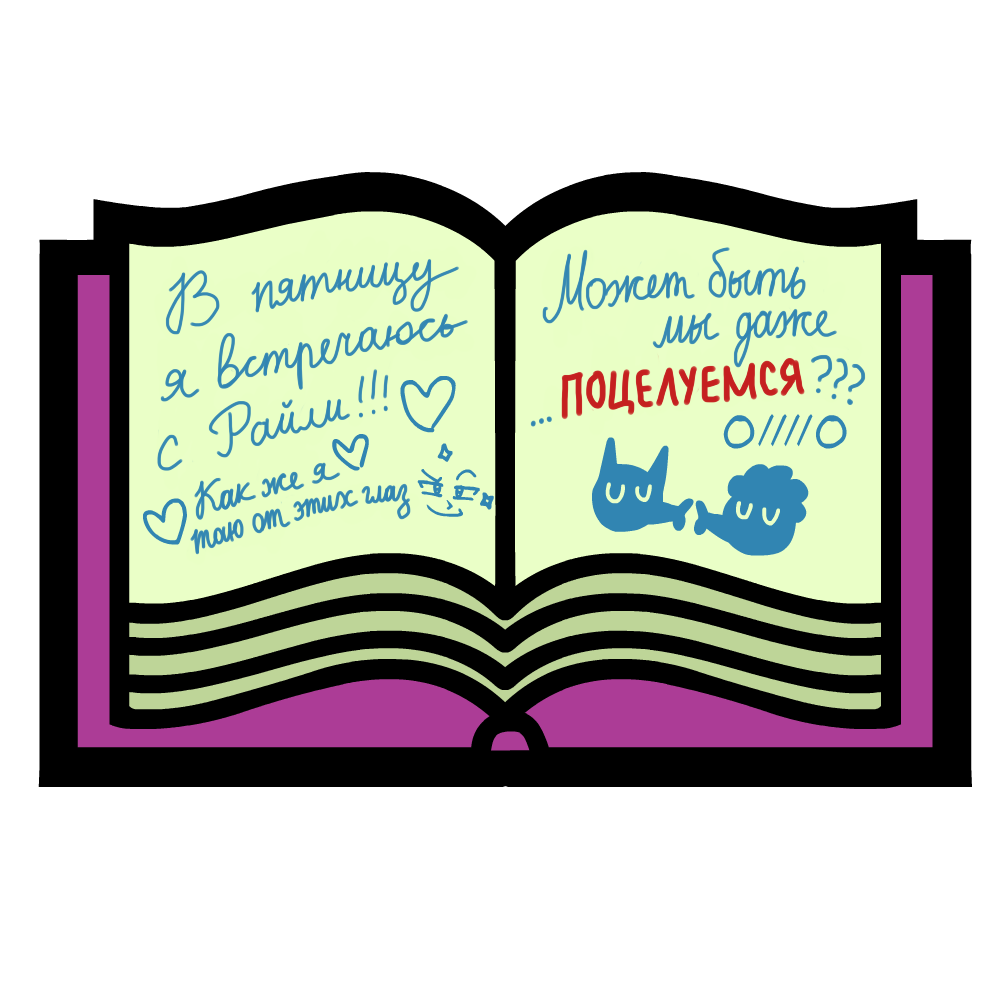 В пятницу
я встречаюсь
с Райли!!!
Как же я
таю от этих глаз
Может быть
мы даже
...ПОЦЕЛУЕМСЯ???
О////О